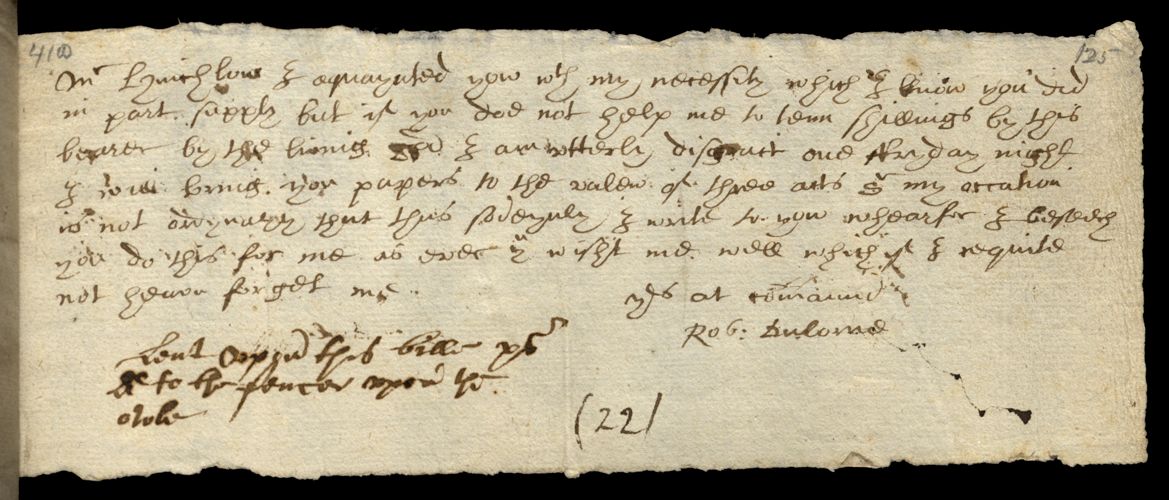 410
125
Mr Hynchlow I aquaynted you wth my necessity which I know you did
in part supply but if you doe not help me to tenn shillings by this
bearer by the living god I am utterly disgract one fryday night
I will bring you papers to the valew of three acts Sr my occation
is not ordynary that thus sodeynly I write to you whearfor I beseech
you do this for me as ever yu wisht me well which if I requite
not heaven forget me
yrs at comaund
Rob: Dulorne
Lent uppon this bille xs
to the fencer upon the
(22)